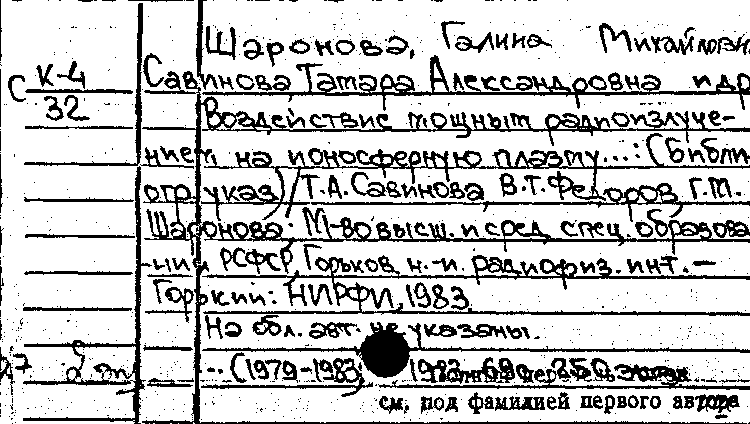 Шаронова, Галина Михайловн
С К-4 Савинова, Тамара Александровна и др
32
Воздействие мощным радиоизлуче-
нием на ионосферную плазму...: (Библи
огр. указ) / Т.А. Савинова, В.Т. Федоров, Г.М.
Шаронова; М-во высш. и сред. спец. образова
-ния РСФСР, Горьков. н.-и. радиофиз. инт. –
Горький: НИРФИ, 1983.
На обл. авт. не указаны.
-- (1979-1983; 1983. 69с. 250
см. под фамилией первого автора